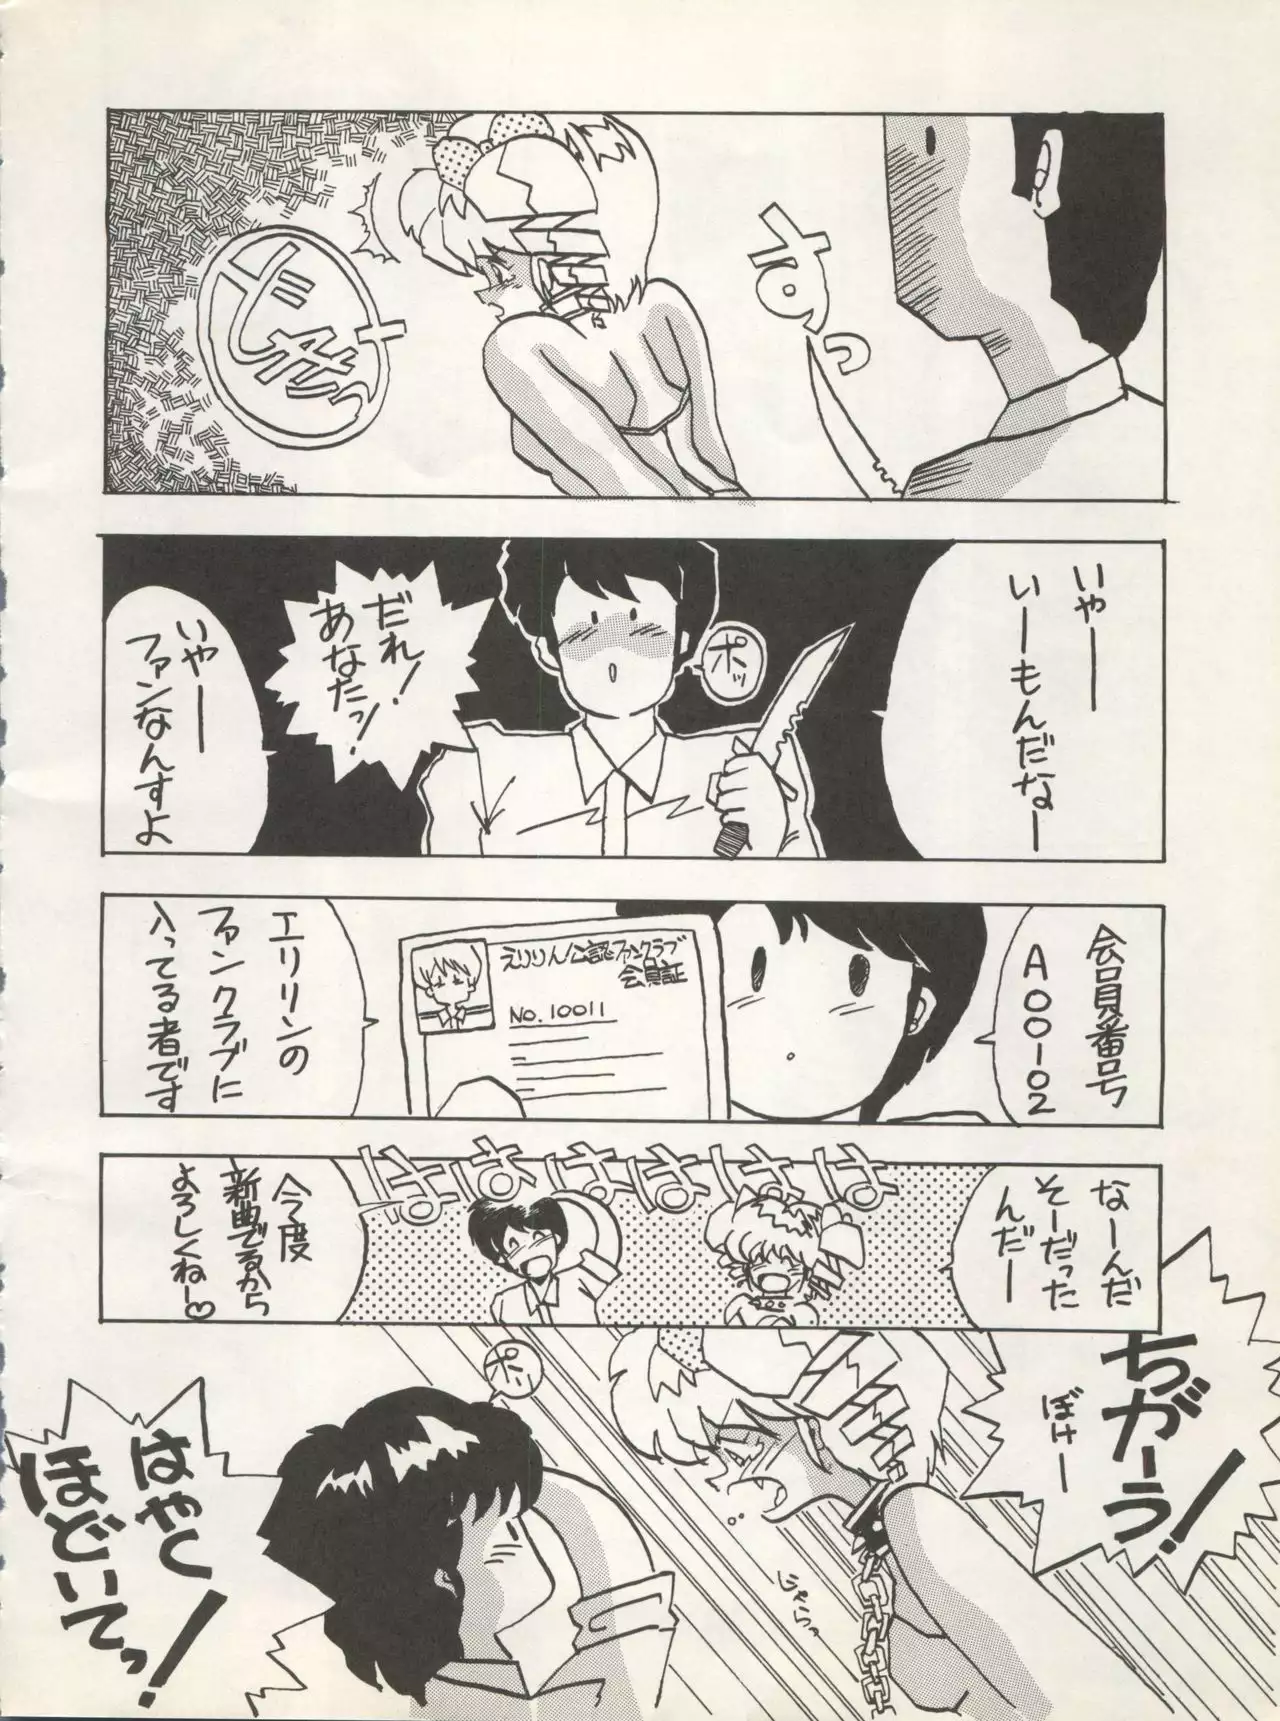 すっ
どしゃっ
いやー
いーもんだなー
ポッ
だれ!
あなたっ!
いやー
ファンなんすよ
会員番号
A00-02
えりりん公認ファンクラブ
会員証
No.10011
エリリンの
ファンクラブに
入ってる者です
なーんだ
そーだった
んだー
ははははははは
今度
新曲でるから
よろしくねー♡
ちがーう!
ぼけー
ポッ
じゃらっ
はやく
ほどいてっ!